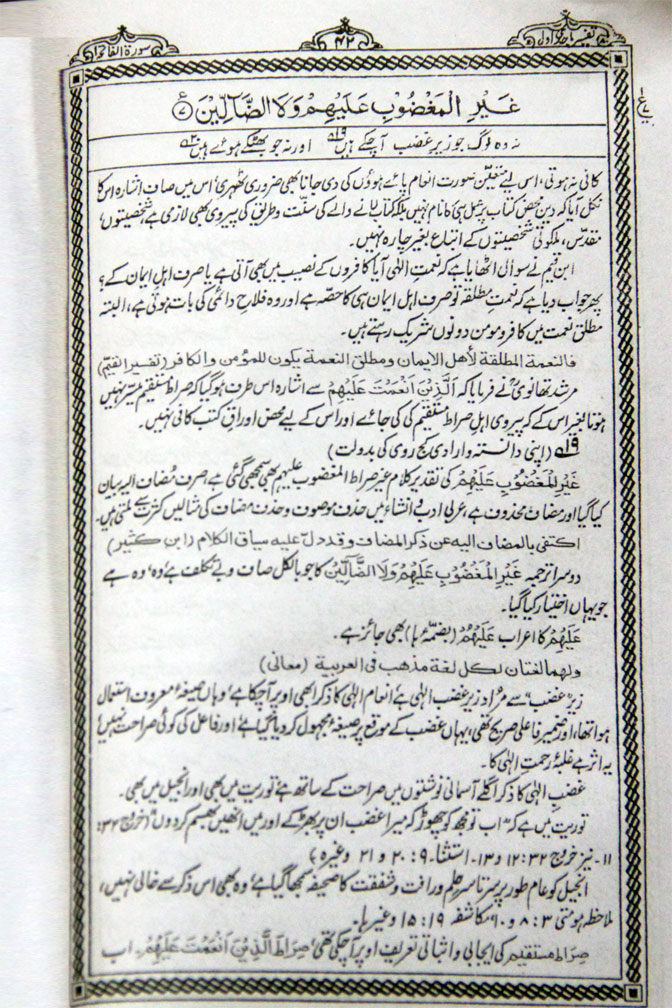 تفسیر ماجدی اول
۴۲
سورۃ الفاتحۃ
غَیْرِ الْمَغْضُوْبِ عَلَیْهِمْ وَلَا الضَّآلِّیْنَ ﴿۷﴾
نہ وہ لوگ جو زیرِ غضب آچکے ہیں ۱۹ اور نہ جو بھٹکے ہوئے ہیں ۲۰
کافی نہ ہوتی، اس لیے متعین صورت انعام پائے ہوؤں کی دی جانا بھی ضروری ٹھہری، اس میں صاف اشارہ اس کا
نکل آیا کہ دین محض کتاب پر عمل ہی کا نام نہیں بلکہ کتاب لانے والے کی سنت و طریق کی پیروی بھی لازمی ہے، شخصیتوں،
مقدس، ملکوتی شخصیتوں کے اتباع بغیر چارہ نہیں۔
ابن قیم نے سوال اٹھایا ہے کہ نعمتِ الٰہی آیا کافروں کے نصیب میں بھی آتی ہے یا صرف اہلِ ایمان کے؟
پھر جواب دیا ہے کہ نعمتِ مطلقہ تو صرف اہلِ ایمان ہی کا حصہ ہے اور وہ فلاحِ دائمی کی بات ہوتی ہے، البتہ
مطلق نعمت میں کافر و مومن دونوں شریک رہتے ہیں۔
فالنعمة المطلقة لأهل الایمان ومطلق النعمة یکون للمؤمن والکافر (تفسیر القیم)
مرشد تھانویؒ نے فرمایا کہ اَلَّذِیْنَ اَنْعَمْتَ عَلَیْهِمْ سے اشارہ اس طرف ہوگیا کہ صراطِ مستقیم میسر نہیں
ہوتا بغیر اس کے کہ پیروی اہلِ صراطِ مستقیم کی کی جائے اور اس کے لیے محض اوراق کتب کافی نہیں۔
۱۹ (اپنی دانستہ و ارادی کج روی کی بدولت)
غَیْرِ الْمَغْضُوْبِ عَلَیْهِمْ کی تقدیر کلام غیر صراط المغضوب علیہم بھی سمجھی گئی ہے، صرف مضاف الیہ بیان
کیا گیا اور مضاف محذوف ہے، عربی ادب و انشاء میں حذف موصوف و حذف مضاف کی مثالیں کثرت سے ملتی ہیں۔
اکتفی بالمضاف الیه عن ذکر المضاف وقد دل علیه سیاق الکلام (ابن کثیر)
دوسرا ترجمہ غَیْرِ الْمَغْضُوْبِ عَلَیْهِمْ وَلَا الضَّآلِّیْنَ کا جو بالکل صاف و بے تکلف ہے، وہ، وہ ہے
جو یہاں اختیار کیا گیا۔
عَلَیْهِمْ کا اعراب عَلَیْهُمْ (بضمّۂ ہا) بھی جائز ہے۔
ولهما لغتان لکل لغة مذهب فی العربیة (معالی)
زیرِ "غضب" سے مراد زیرِ غضبِ الٰہی ہے، انعامِ الٰہی کا ذکر ابھی اوپر آچکا ہے، وہاں صیغۂ معروف استعمال
ہوا تھا، اور ضمیر فاعلی صریح تھی، یہاں غضب کے موقع پر صیغہ مجہول کردیا گیا ہے، اور فاعل کی کوئی صراحت نہیں،
یہ اثر ہے غلبۂ رحمتِ الٰہی کا۔
غضبِ الٰہی کا ذکر اگلے آسمانی نوشتوں میں صراحت کے ساتھ ہے، توریت میں بھی اور انجیل میں بھی۔
توریت میں ہے کہ "اب تو مجھ کو چھوڑ کہ میرا غضب ان پر بھڑکے اور میں انھیں بھسم کردوں" (خروج ۳۲:
۱۱- نیز خروج ۳۲: ۱۲ و ۱۳- استثنا- ۹: ۲۰ و ۲۱ وغیرہ)
انجیل کو عام طور پر سرتاسر حلم و رافت و شفقت کا صحیفہ سمجھا گیا ہے، وہ بھی اس ذکر سے خالی نہیں،
ملاحظہ ہو متی ۳: ۸ و ۱۰، مکاشفہ ۱۹: ۱۵ وغیرہا۔
صراطِ مستقیم کی ایجابی و اثباتی تعریف اوپر آچکی تھی، صِرَاطَ الَّذِیْنَ اَنْعَمْتَ عَلَیْهِمْ۔ اب